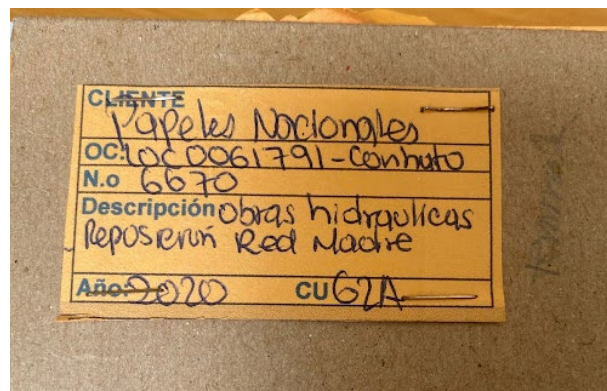 CLIENTE
Papeles Nacionales
OC: LOC0061791-Contrato
N.o 6670
Descripción obras hidraulicas
Reposición Red Madre
Año: 2020 CU 62A